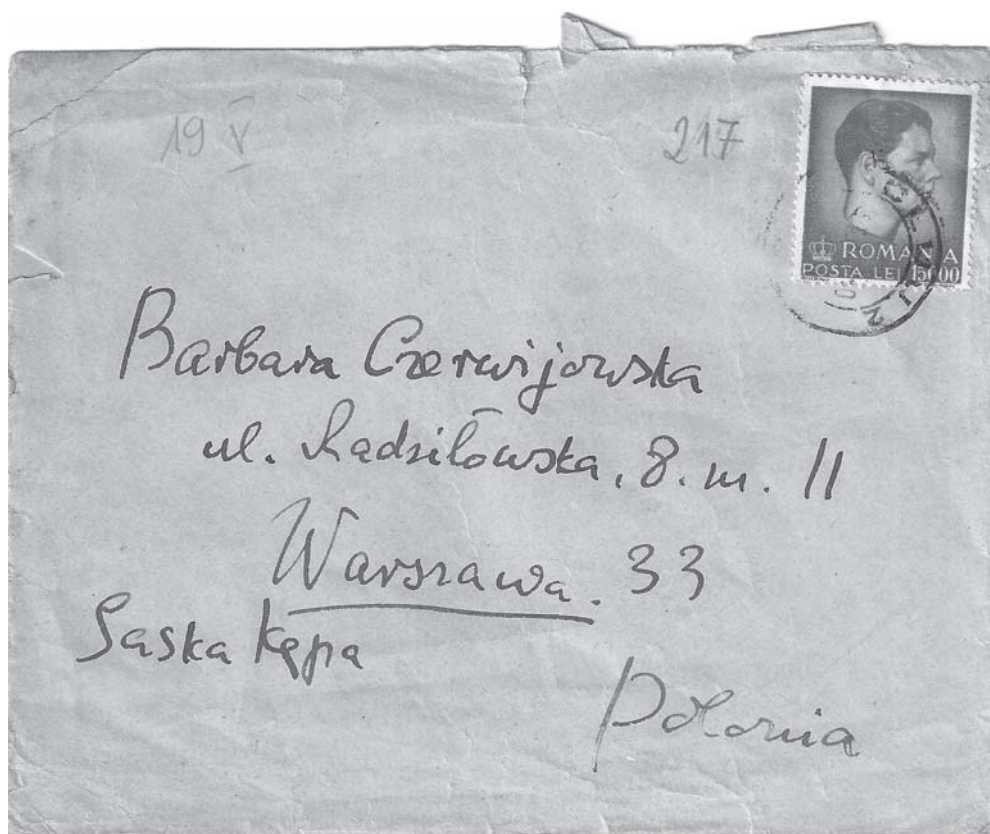 19 V
217
ROMANIA
POSTA LEI 15000
Barbara Czerwijowska
ul. Radziłowska. 8. m. 11
Warszawa. 33
Saska Kępa
Polonia